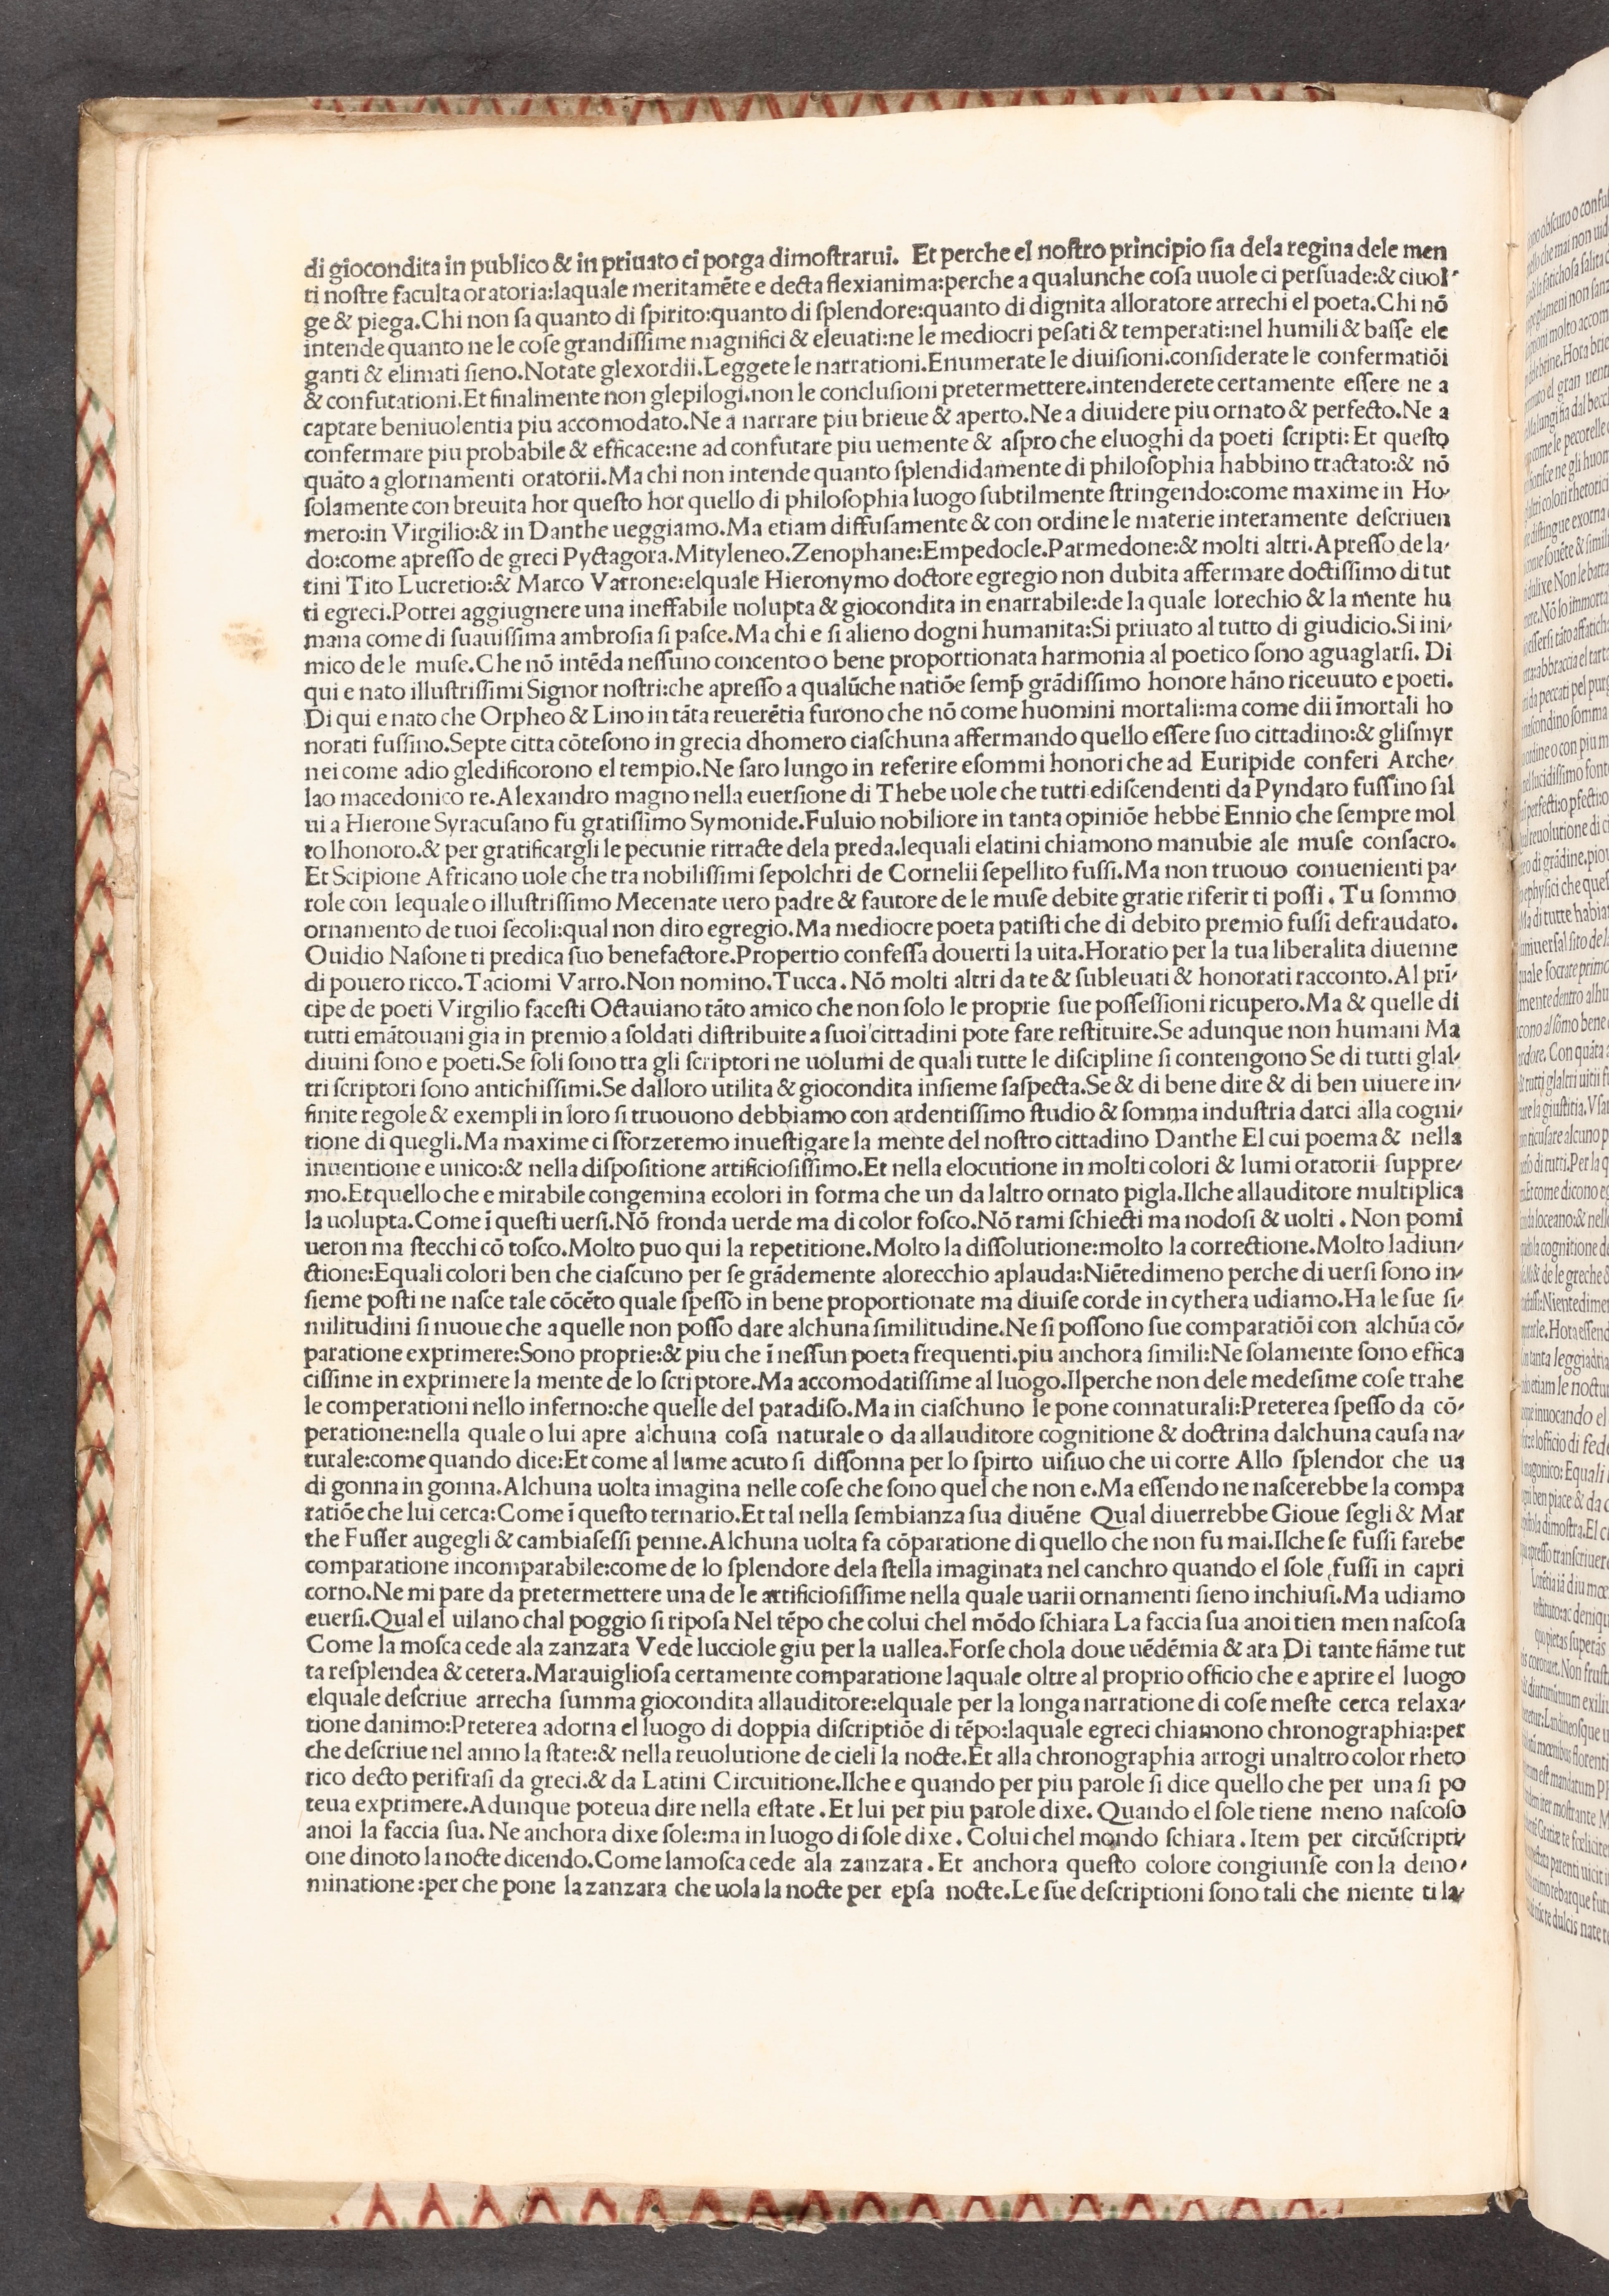 di giocondita in publico & in priuato ci porga dimostrarui. Et perche el nostro principio sia dela regina dele men
ti nostre faculta oratoria:laquale meritamēte e decta flexianima:perche a qualunche cosa uuole ci persuade:& ciuol-
ge & piega.Chi non sa quanto di spirito:quanto di splendore:quanto di dignita alloratore arrechi el poeta.Chi nō
intende quanto ne le cose grandissime magnifici & eleuati:ne le mediocri pesati & temperati:nel humili & basse ele
ganti & elimati sieno.Notate glexordii.Leggete le narrationi.Enumerate le diuisioni.considerate le confermatiōi
& confutationi.Et finalmente non glepilogi.non le conclusioni pretermettere.intenderete certamente essere ne a
captare beniuolentia piu accomodato.Ne a narrare piu brieue & aperto.Ne a diuidere piu ornato & perfecto.Ne a
confermare piu probabile & efficace:ne ad confutare piu uemente & aspro che eluoghi da poeti scripti:Et questo
quāto a glornamenti oratorii.Ma chi non intende quanto splendidamente di philosophia habbino tractato:& nō
solamente con breuita hor questo hor quello di philosophia luogo subtilmente stringendo:come maxime in Ho-
mero:in Virgilio:& in Danthe ueggiamo.Ma etiam diffusamente & con ordine le materie interamente descriuen
do:come apresso de greci Pyctagora.Mityleneo.Zenophane:Empedocle.Parmedone:& molti altri.Apresso de la-
tini Tito Lucretio:& Marco Varrone:elquale Hieronymo doctore egregio non dubita affermare doctissimo di tut
ti egreci.Potrei aggiugnere una ineffabile uolupta & giocondita in enarrabile:de la quale lorechio & la mente hu
mana come di suauissima ambrosia si pasce.Ma chi e si alieno dogni humanita:Si priuato al tutto di giudicio.Si ini-
mico de le muse.Che nō intēda nessuno concento o bene proportionata harmonia al poetico sono aguaglarsi. Di
qui e nato illustrissimi Signor nostri:che apresso a qualūche natiōe semp̄ grādissimo honore hāno riceuuto e poeti.
Di qui e nato che Orpheo & Lino in tāta reuerētia furono che nō come huomini mortali:ma come dii īmortali ho
norati fussino.Septe citta cōtesono in grecia dhomero ciaschuna affermando quello essere suo cittadino:& glismyr
nei come adio gledificorono el tempio.Ne saro lungo in referire esommi honori che ad Euripide conferi Arche-
lao macedonico re.Alexandro magno nella euersione di Thebe uole che tutti ediscendenti da Pyndaro fussino sal
ui a Hierone Syracusano fu gratissimo Symonide.Fuluio nobiliore in tanta opiniōe hebbe Ennio che sempre mol
to lhonoro.& per gratificargli le pecunie ritracte dela preda.lequali elatini chiamono manubie ale muse consacro.
Et Scipione Africano uole che tra nobilissimi sepolchri de Cornelii sepellito fussi.Ma non truouo conuenienti pa-
role con lequale o illustrissimo Mecenate uero padre & fautore de le muse debite gratie riferir ti possi. Tu sommo
ornamento de tuoi secoli:qual non diro egregio.Ma mediocre poeta patisti che di debito premio fussi defraudato.
Ouidio Nasone ti predica suo benefactore.Propertio confessa douerti la uita.Horatio per la tua liberalita diuenne
di pouero ricco.Taciomi Varro.Non nomino.Tucca.Nō molti altri da te & subleuati & honorati racconto.Al prī-
cipe de poeti Virgilio facesti Octauiano tāto amico che non solo le proprie sue possessioni ricupero.Ma & quelle di
tutti emātouani gia in premio a soldati distribuite a suoi cittadini pote fare restituire.Se adunque non humani Ma
diuini sono e poeti.Se soli sono tra gli scriptori ne uolumi de quali tutte le discipline si contengono Se di tutti glal-
tri scriptori sono antichissimi.Se dalloro utilita & giocondita insieme saspecta.Se & di bene dire & di ben uiuere in-
finite regole & exempli in loro si truouono debbiamo con ardentissimo studio & somma industria darci alla cogni-
tione di quegli.Ma maxime ci sforzeremo inuestigare la mente del nostro cittadino Danthe El cui poema & nella
inuentione e unico:& nella dispositione artificiosissimo.Et nella elocutione in molti colori & lumi oratorii suppre-
mo.Et quello che e mirabile congemina ecolori in forma che un da laltro ornato pigla.Ilche allauditore multiplica
la uolupta.Come ī questi uersi.Nō fronda uerde ma di color fosco.Nō rami schiecti ma nodosi & uolti. Non pomi
ueron ma stecchi cō tosco.Molto puo qui la repetitione.Molto la dissolutione:molto la correctione.Molto ladiun-
ctione:Equali colori ben che ciascuno per se grādemente alorecchio aplauda:Niētedimeno perche diuersi sono in-
sieme posti ne nasce tale cōcēto quale spesso in bene proportionate ma diuise corde in cythera udiamo.Ha le sue si-
militudini si nuoue che a quelle non posso dare alchuna similitudine.Ne si possono sue comparatiōi con alchūa cō-
paratione exprimere:Sono proprie:& piu che ī nessun poeta frequenti.piu anchora simili:Ne solamente sono effica
cissime in exprimere la mente de lo scriptore.Ma accomodatissime al luogo.Ilperche non dele medesime cose trahe
le comperationi nello inferno:che quelle del paradiso.Ma in ciaschuno le pone connaturali:Preterea spesso da cō-
peratione:nella quale o lui apre alchuna cosa naturale o da allauditore cognitione & doctrina dalchuna causa na-
turale:come quando dice:Et come al lume acuto si dissonna per lo spirto uisiuo che ui corre Allo splendor che ua
di gonna in gonna.Alchuna uolta imagina nelle cose che sono quel che non e.Ma essendo ne nascerebbe la compa
ratiōe che lui cerca:Come ī questo ternario.Et tal nella sembianza sua diuēne Qual diuerrebbe Gioue segli & Mar
the Fusser augegli & cambiasessi penne.Alchuna uolta fa cōparatione di quello che non fu mai.Ilche se fussi farebe
comparatione incomparabile:come de lo splendore dela stella imaginata nel canchro quando el sole fussi in capri
corno.Ne mi pare da pretermettere una de le artificiosissime nella quale uarii ornamenti sieno inchiusi.Ma udiamo
euersi.Qual el uilano chal poggio si riposa Nel tēpo che colui chel mōdo schiara La faccia sua anoi tien men nascosa
Come la mosca cede ala zanzara Vede lucciole giu per la uallea.Forse chola doue uēdēmia & ara Di tante fiāme tut
ta resplendea & cetera.Marauigliosa certamente comparatione laquale oltre al proprio officio che e aprire el luogo
elquale descriue arrecha summa giocondita allauditore:elquale per la longa narratione di cose meste cerca relaxa-
tione danimo:Preterea adorna el luogo di doppia discriptiōe di tēpo:laquale egreci chiamono chronographia:per
che descriue nel anno la state:& nella reuolutione de cieli la nocte.Et alla chronographia arrogi unaltro color rheto
rico decto perifrasi da greci.& da Latini Circuitione.Ilche e quando per piu parole si dice quello che per una si po
teua exprimere.Adunque poteua dire nella estate.Et lui per piu parole dixe. Quando el sole tiene meno nascoso
anoi la faccia sua. Ne anchora dixe sole:ma in luogo di sole dixe. Colui chel mondo schiara. Item per circūscripti-
one dinoto la nocte dicendo.Come lamosca cede ala zanzara. Et anchora questo colore congiunse con la deno-
minatione:per che pone la zanzara che uola la nocte per epsa nocte.Le sue descriptioni sono tali che niente ti la-